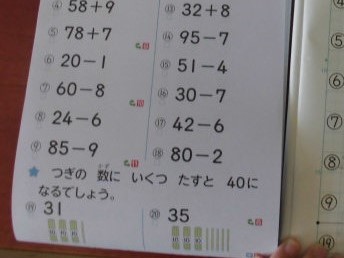 ④ 58+9
⑬ 32+8
⑤ 78+7
⑭ 95-7
⑥ 20-1
⑮ 51-4
⑦ 60-8
⑯ 30-7
⑧ 24-6
⑰ 42-6
⑨ 85-9
⑱ 80-2
★ つぎの 数に いくつ たすと 40に
なるでしょう。
⑲ 31
⑳ 35
⑥
⑦
⑧
⑨